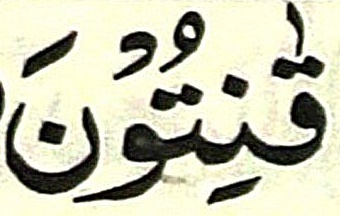 قٰنِتُوْنَ